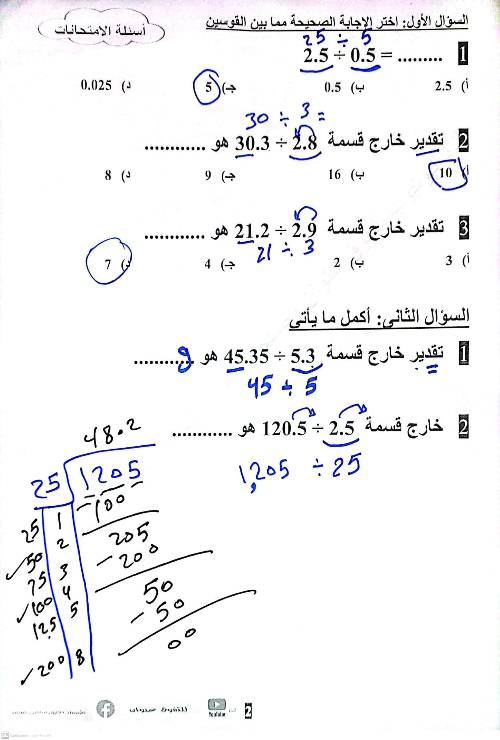 السؤال الأول: اختر الإجابة الصحيحة مما بين القوسين
أسئلة الامتحانات
25 ÷ 5
1 2.5 ÷ 0.5 = .........
أ) 2.5 ب) 0.5 جـ) 5 د) 0.025
30 ÷ 3 =
2 تقدير خارج قسمة 2.8 ÷ 30.3 هو ............
أ) 10 ب) 16 جـ) 9 د) 8
3 تقدير خارج قسمة 2.9 ÷ 21.2 هو ............
21 ÷ 3
أ) 3 ب) 2 جـ) 4 د) 7
السؤال الثانى: أكمل ما يأتى
1 تقدير خارج قسمة 5.3 ÷ 45.35 هو 9 ............
45 ÷ 5
2 خارج قسمة 2.5 ÷ 120.5 هو ............
1205 ÷ 25
48.2
25 1205
- 100
205
- 200
50
- 50
00
25 1
50 2
75 3
100 4
125 5
200 8
YouTube
2